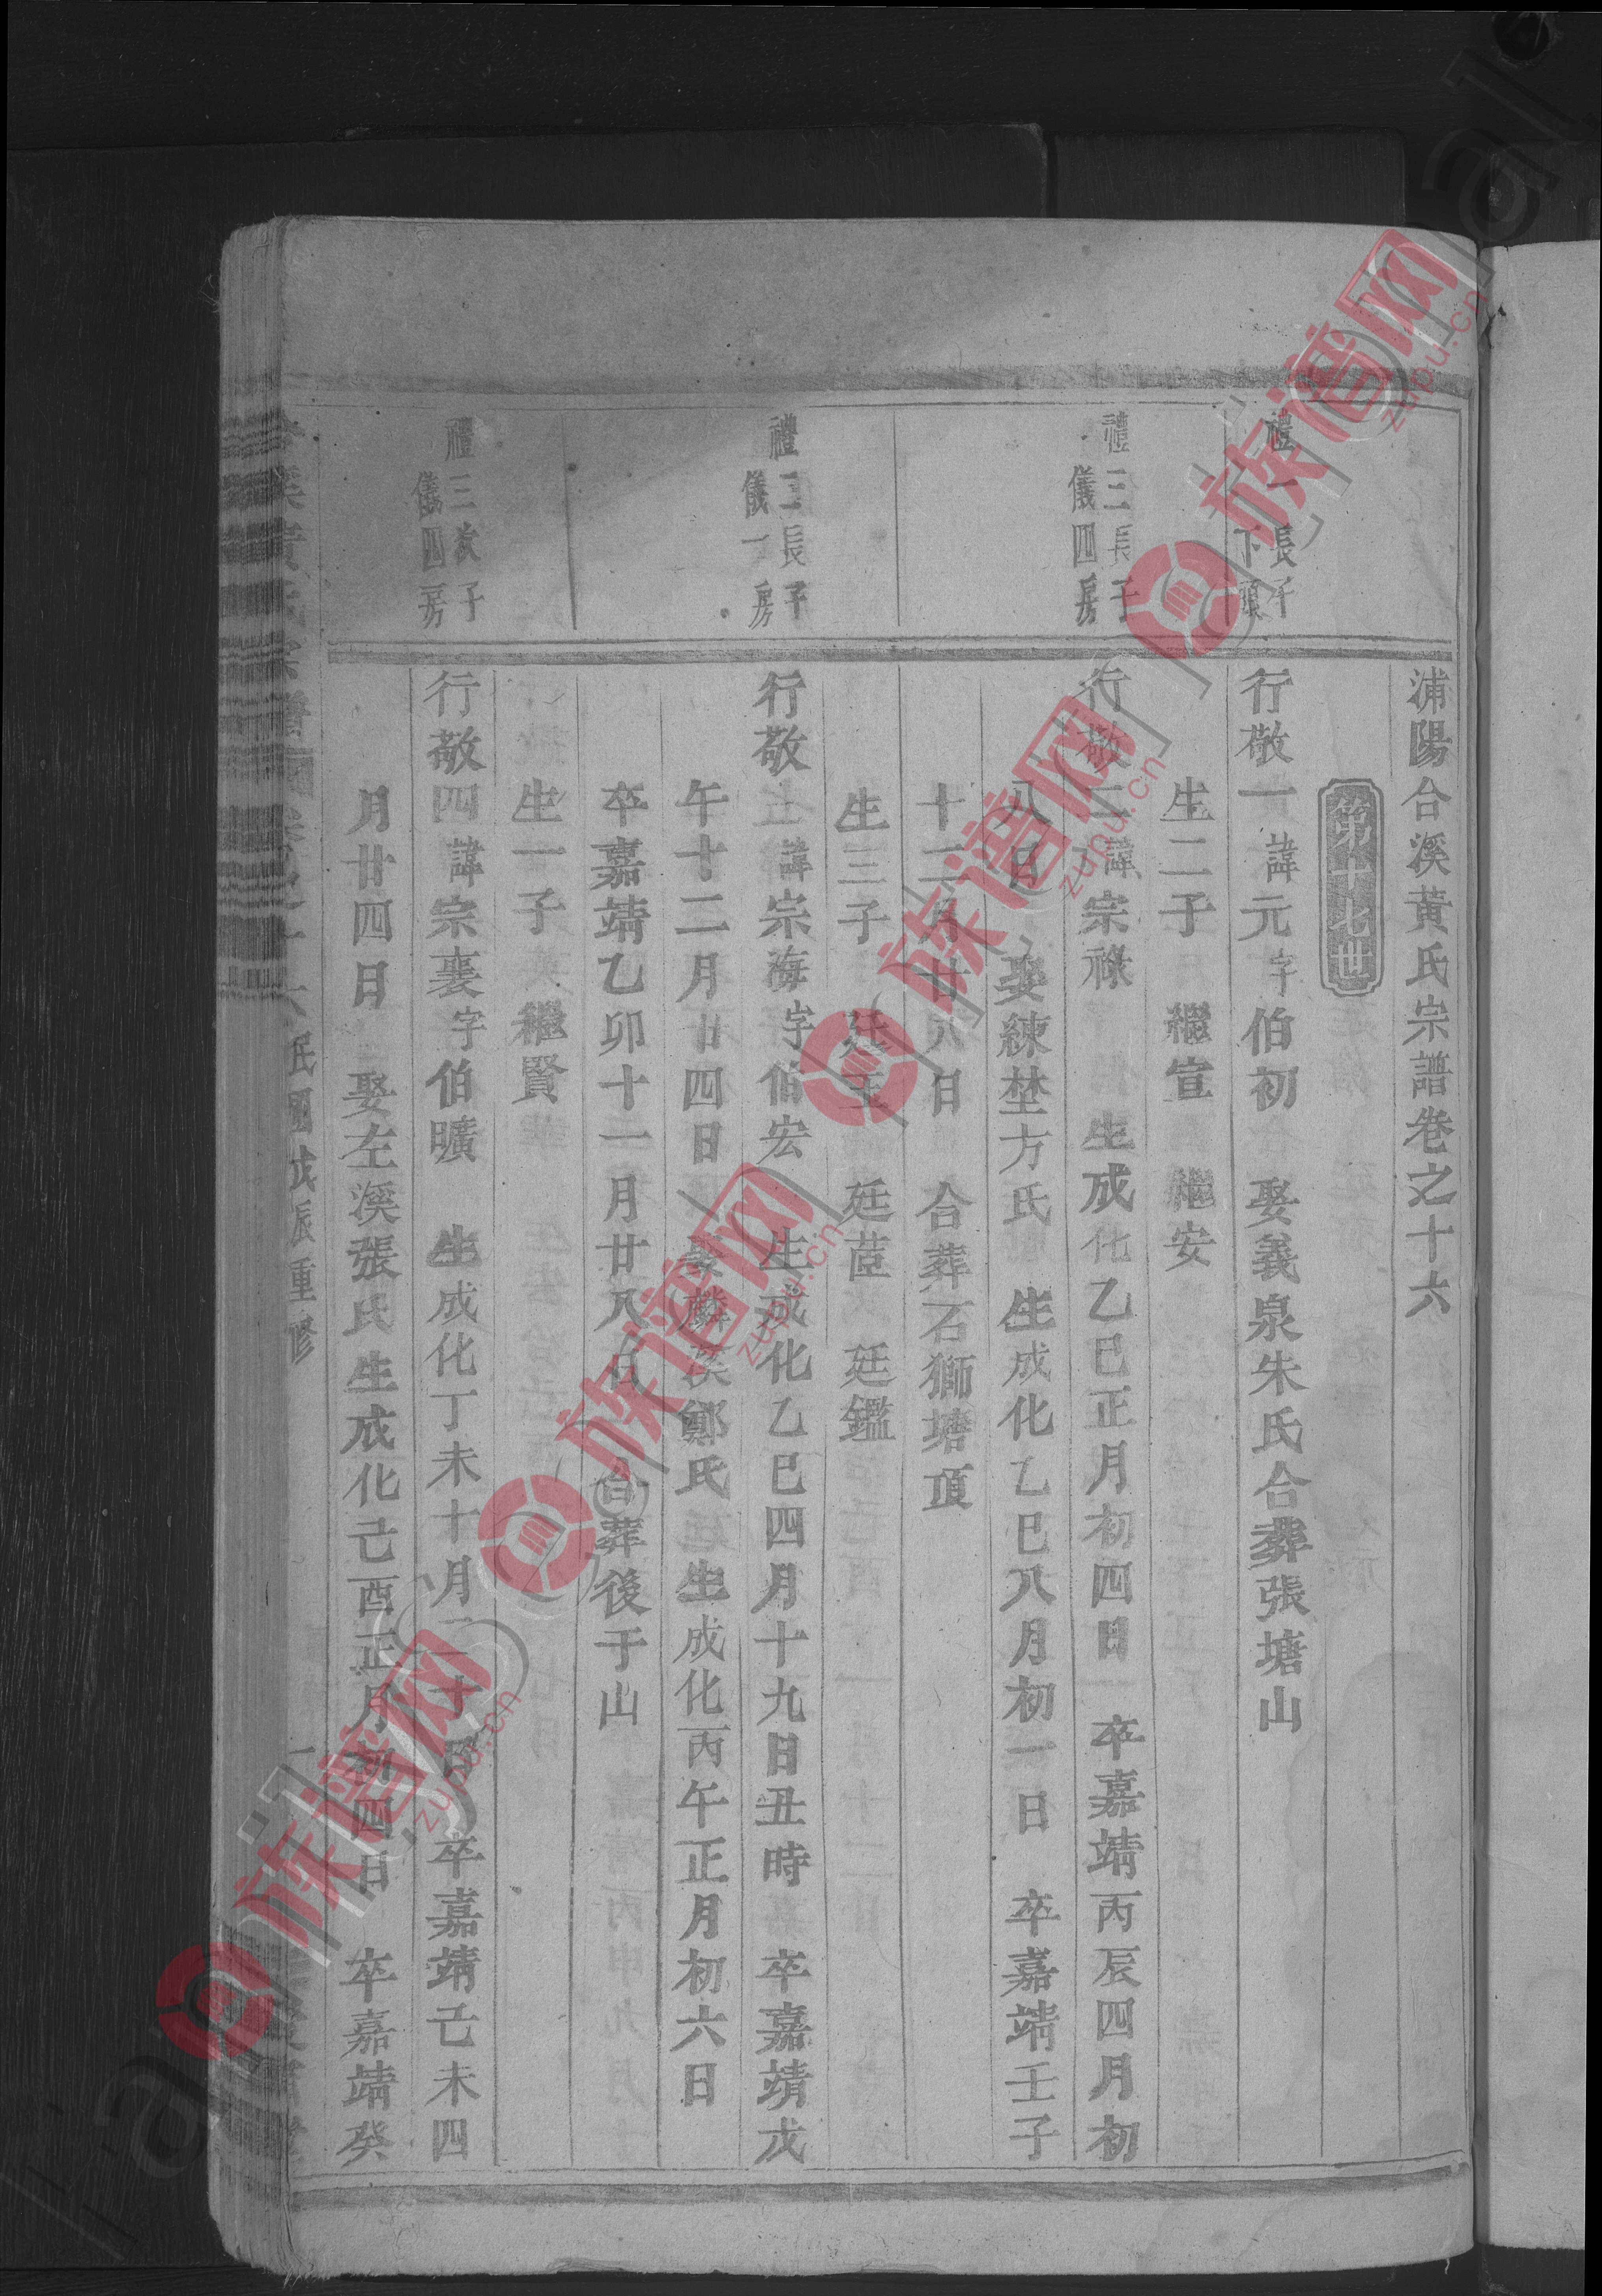 浦陽合溪黃氏宗譜卷之十六
第十七世
禮一長子
下頭
行敬一諱元字伯初 娶義泉朱氏合葬張塘山
生二子 繼宣 繼安
禮三長子
儀四房
行敬二諱宗祿 生成化乙巳正月初四日 卒嘉靖丙辰四月初
八日 娶練埜方氏 生成化乙巳八月初一日 卒嘉靖壬子
十二月廿八日 合葬石獅塘頂
生三子 廷玉 廷茝 廷鑑
禮二長子
儀一房
行敬 諱宗海字伯宏 生成化乙巳四月十九日丑時 卒嘉靖戊
午十二月廿四日 娶麟溪鄭氏 生成化丙午正月初六日
卒嘉靖乙卯十一月廿八日 合葬後于山
生一子 繼賢
禮三次子
儀四房
行敬四諱宗襄字伯曠 生成化丁未十月二十日 卒嘉靖己未四
月廿四日 娶左溪張氏生成化己酉正月初四日 卒嘉靖癸
合溪黃氏宗譜 卷之十六 民國戊辰重修 一
族谱网
zupu.cn
族谱网
zupu.cn
族谱网
zupu.cn
族谱网
zupu.cn